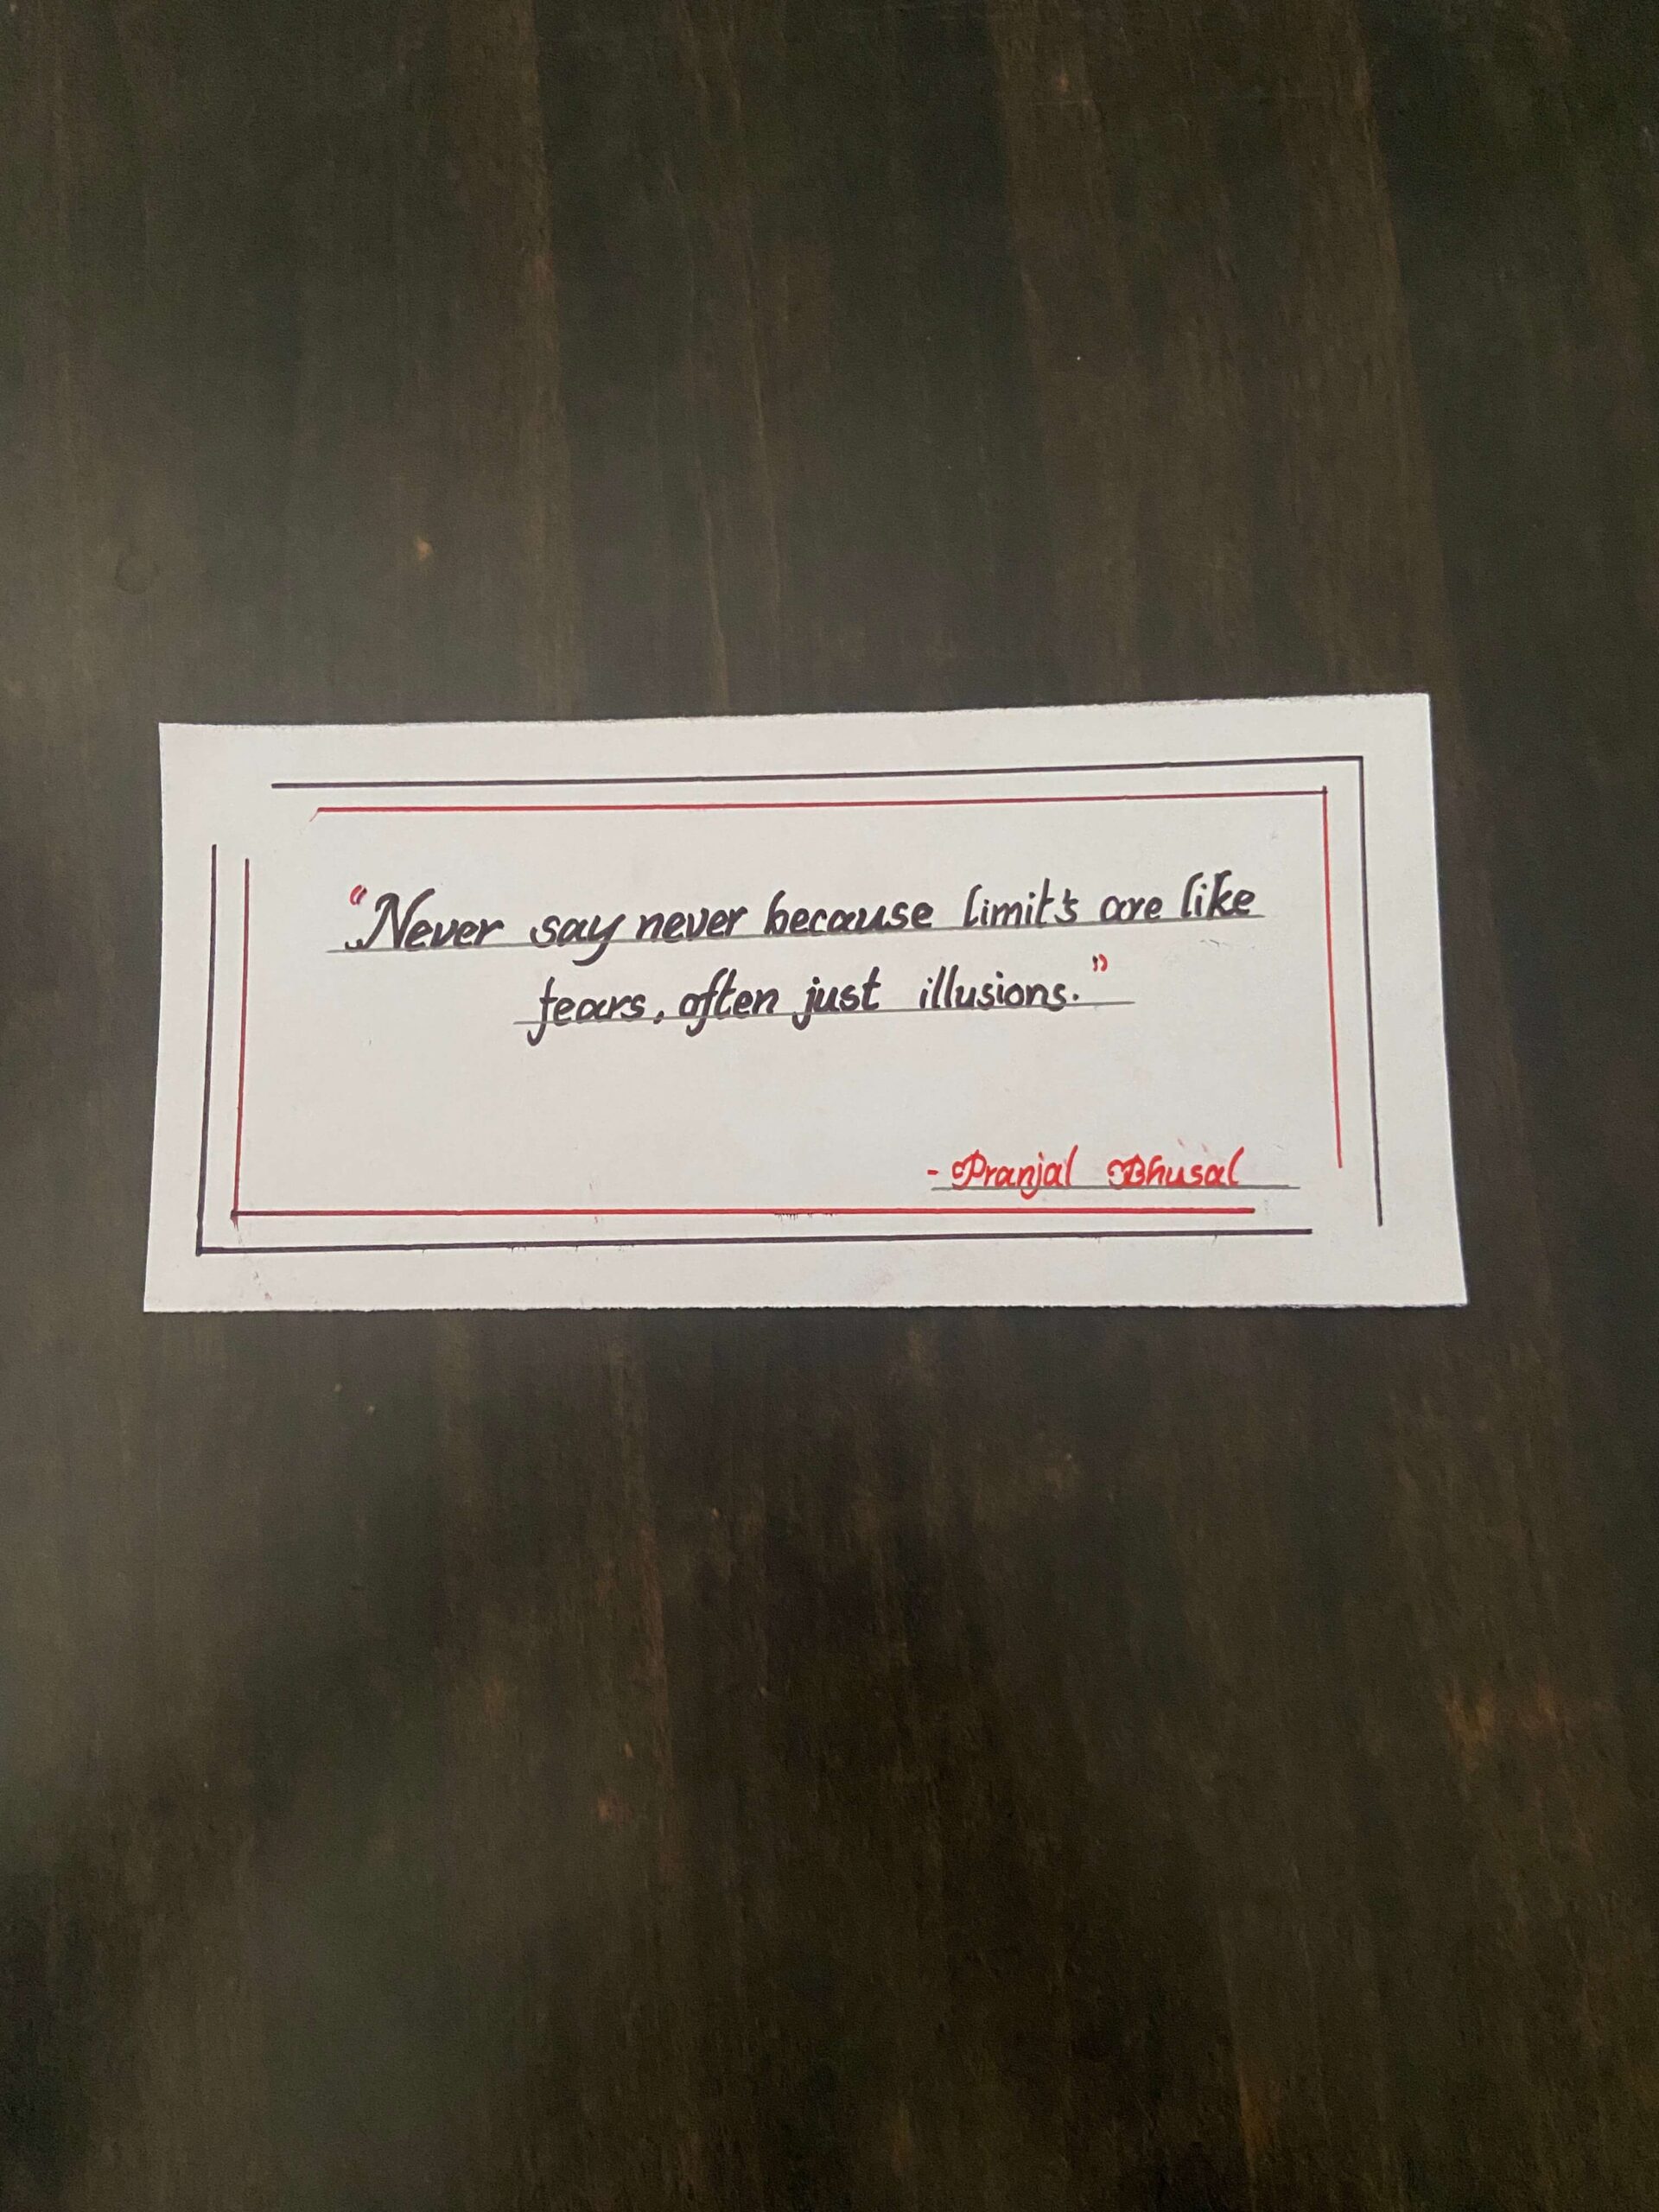 “Never say never because limits are like
fears, often just illusions.”
- Pranjal Bhusal